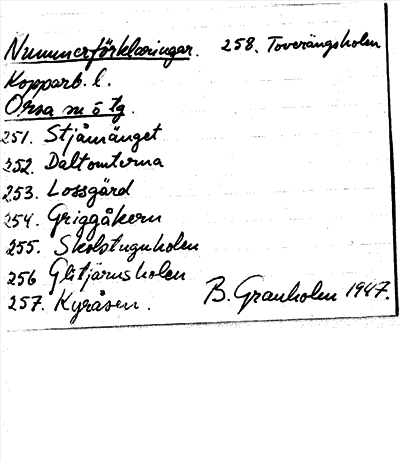 Nummerförklaringar. 258. Toverängsholen
Kopparb. l.
Orsa sn ö tg.
251. Stjärnänget
252. Daltomterna
253. Lossgärd
254. Griggåkern
255. Skolstuguholen
256 Glitjärnsholen
257. Kyråsen. B. Granholm 1947.